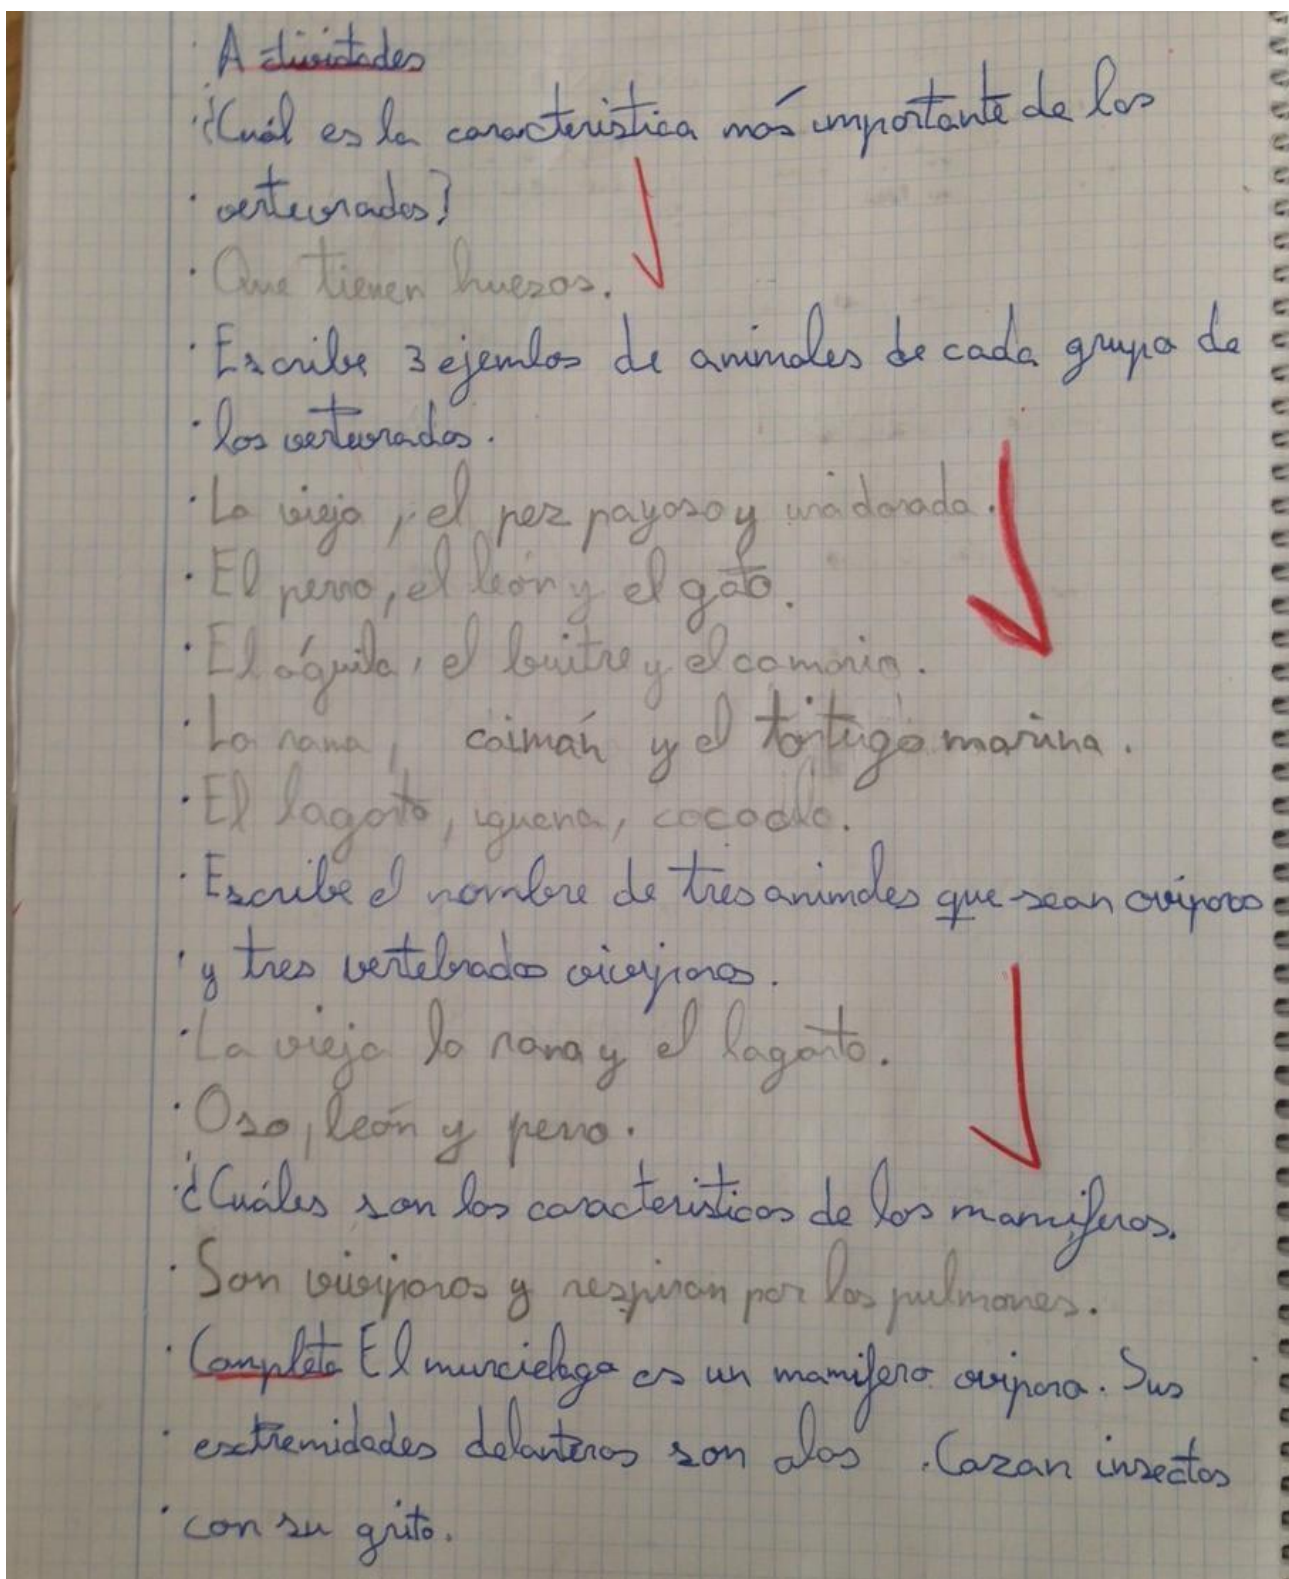 Actividades
¿Cuál es la caracteristica más importante de los
verteurados?
Que tienen huezos.
Escribe 3 ejemlos de animales de cada grupo de
los verteurados.
La vieja, el pez payaso y una dorada.
El perro, el león y el gato.
El águila, el buitre y el camario.
La rana, caimán y el tortuga marina.
El lagarto, iguana, cocodlo.
Escribe el nombre de tres animales que sean ovíparos
y tres vertebrados viviparos.
La vieja la rana y el lagarto.
Oso, león y perro.
¿Cuáles son las caracteristicas de los mamiferos.
Son viviparos y respiran por los pulmones.
Completa El murcielago es un mamifero oviparo. Sus
extremidades delanteras son alas. Cazan insectos
con su grito.